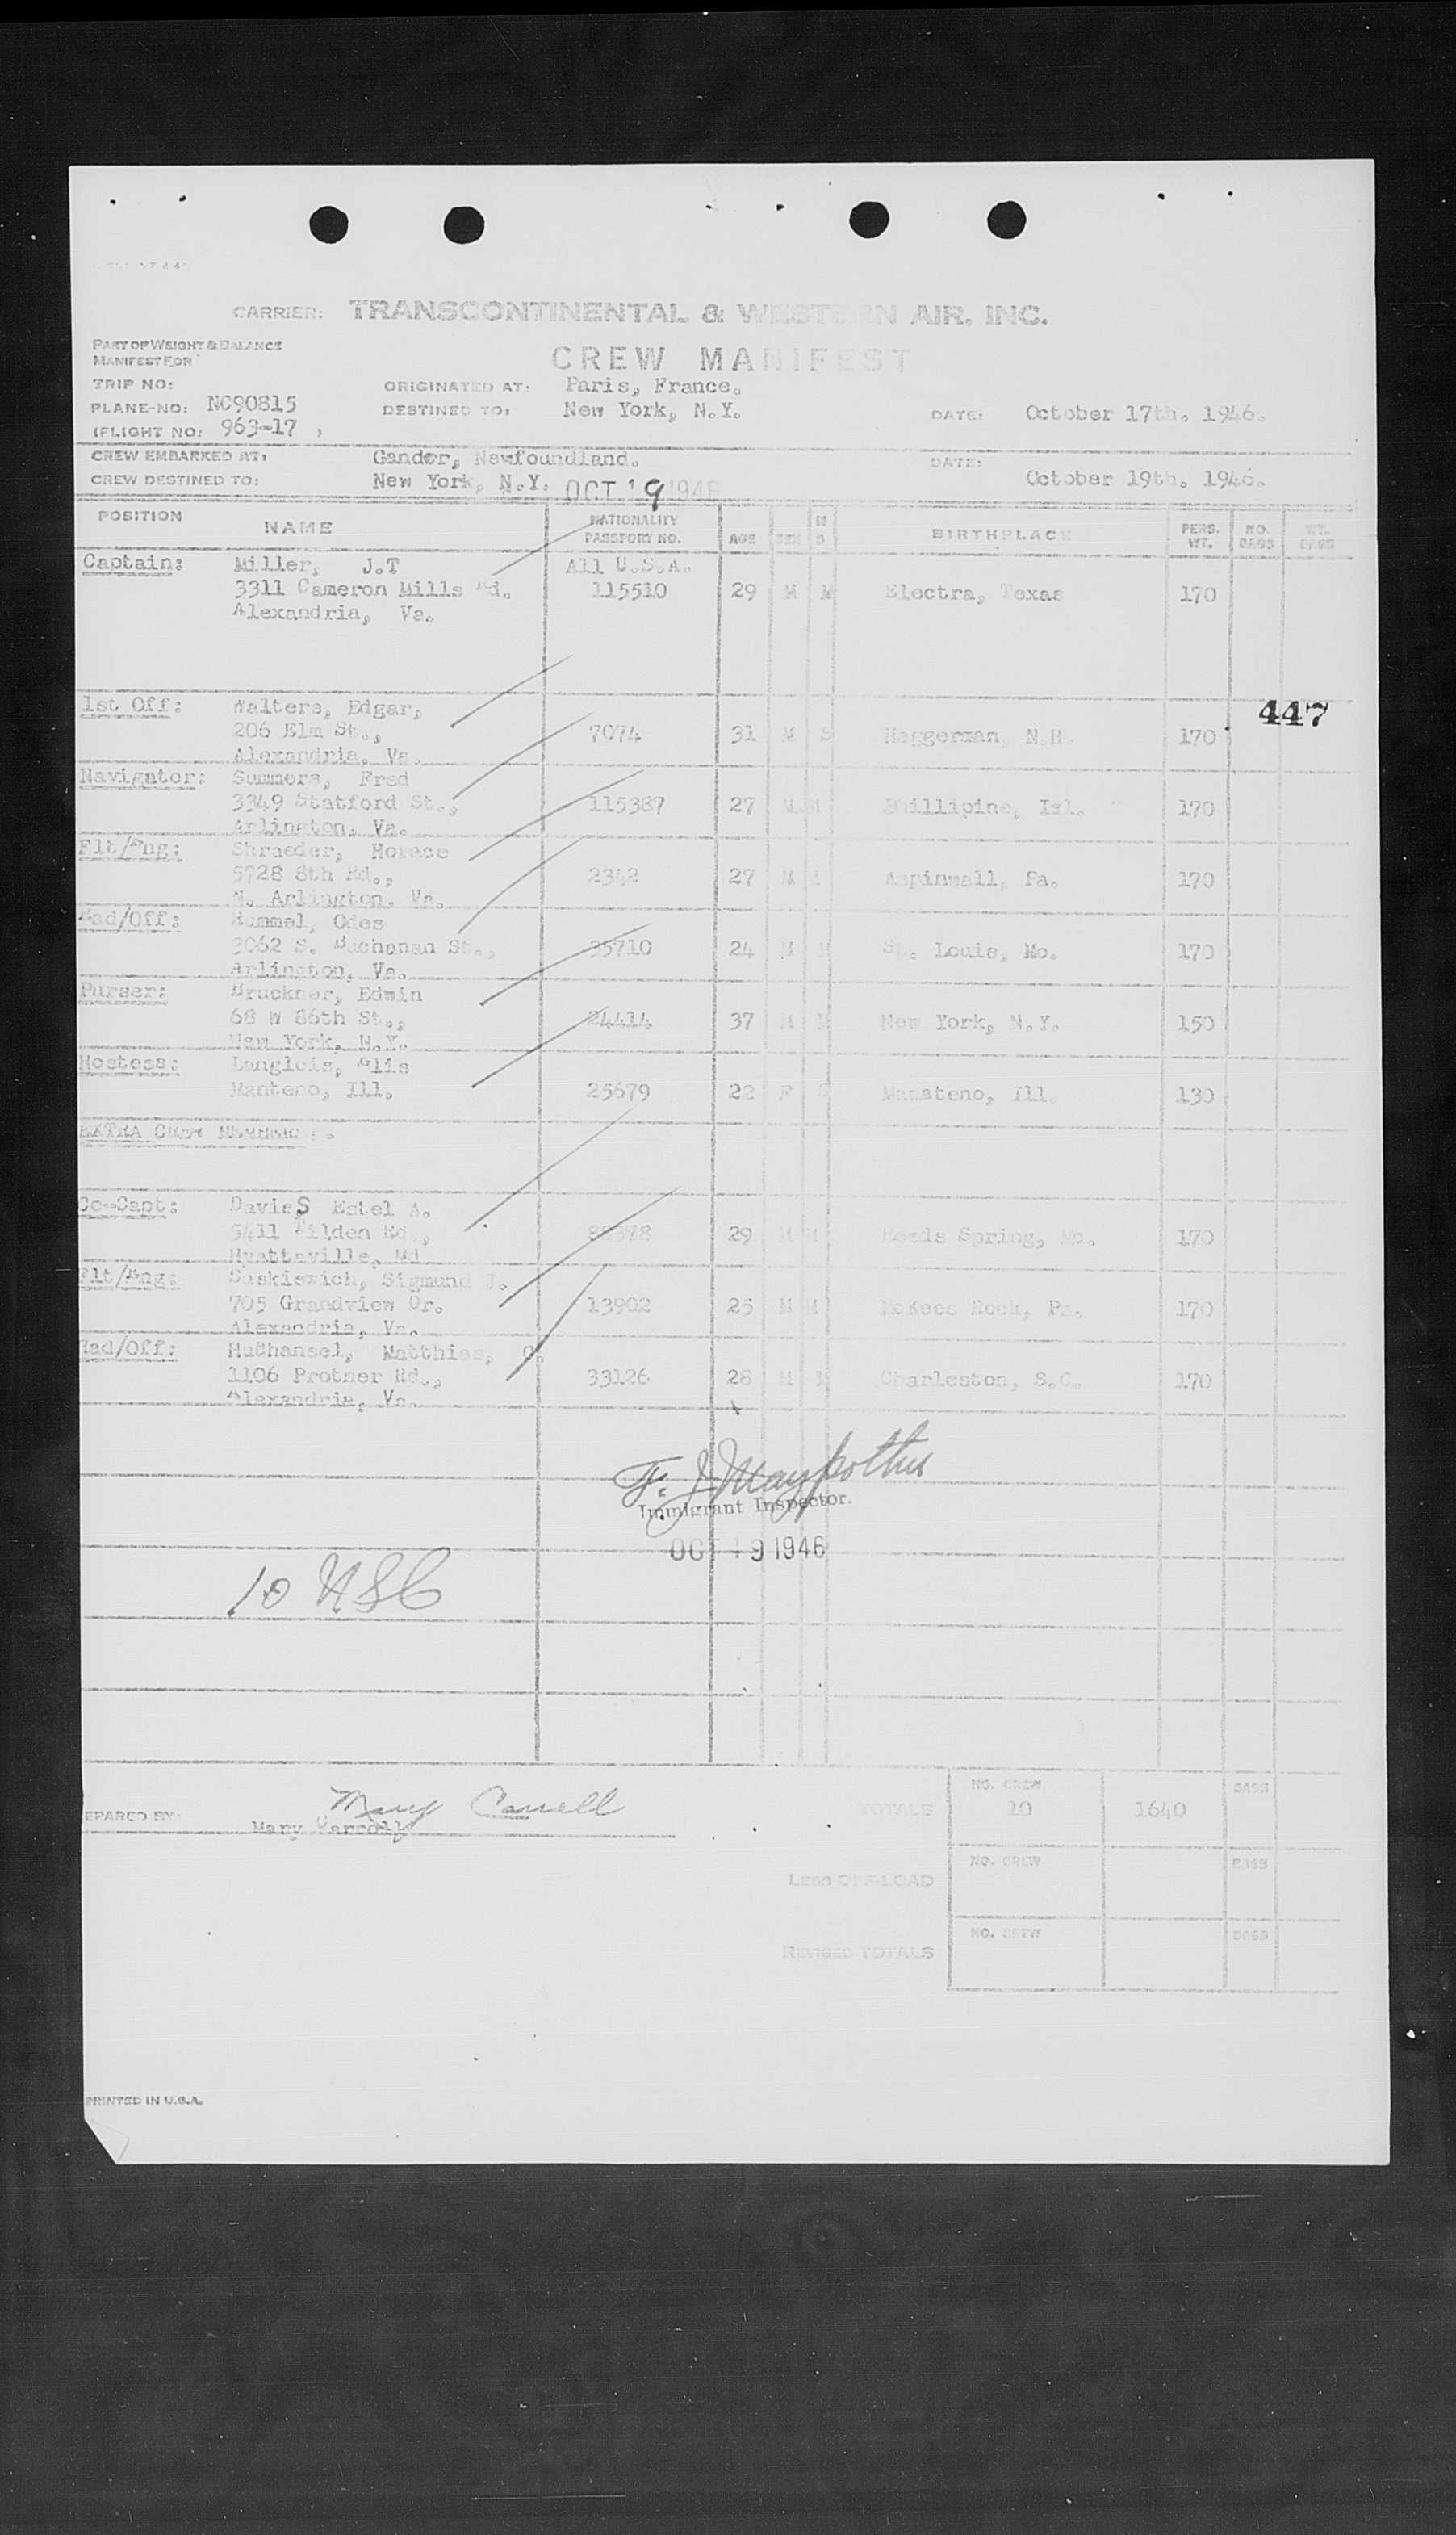 CARRIER: TRANSCONTINENTAL & WESTERN AIR, INC.
PART OF WEIGHT & BALANCE
MANIFEST FOR
CREW MANIFEST
TRIP NO:
ORIGINATED AT: Paris, France.
PLANE-NO: NC90815
DESTINED TO: New York, N.Y.
DATE: October 17th. 1946.
(FLIGHT NO: 963-17 )
CREW EMBARKED AT: Gander, Newfoundland.
DATE:
CREW DESTINED TO: New York, N.Y. OCT 19 1946
October 19th. 1946.
POSITION NAME NATIONALITY PASSPORT NO. AGE SEX M S BIRTHPLACE PERS. WT. NO. BAGS WT. BAGS
Captain: Miller, J.T All U.S.A.
3311 Cameron Mills Rd. 115510 29 M M Electra, Texas 170
Alexandria, Va.
1st Off: Walters, Edgar,
447
206 Elm St., 7074 31 M S Haggerman, N.H. 170
Alexandria, Va.
Navigator: Summers, Fred
3349 Statford St., 115387 27 M M Phillipine, Isl. 170
Arlington, Va.
Flt/Eng: Shraeder, Horace
5728 8th Rd., 2342 27 M M Aspinwall, Pa. 170
N. Arlington, Va.
Rad/Off: Hummel, Odes
3062 S. Buchanan St., 35710 24 M M St. Louis, Mo. 170
Arlington, Va.
Purser: Bruckner, Edwin
68 W 86th St., 24414 37 M M New York, N.Y. 150
New York, N.Y.
Hostess: Langlois, Elis
Manteno, Ill. 25679 22 F S Manateno, Ill. 130
EXTRA CREW MEMBERS.
Co-Capt: DavieS Estel A.
5411 Tilden Rd., 29 M M Reeds Spring, Mo. 170
Hyattsville, Md
Flt/Eng: Saskiewich, Sigmund J.
705 Grandview Dr. 13902 25 M M McKees Rock, Pa. 170
Alexandria, Va.
Rad/Off: Matthias, C.
1106 Protner Rd., 33126 28 M M Charleston, S.C. 170
Alexandria, Va.
F. J. Maypother
Immigrant Inspector.
OCT 19 1946
10 USC
NO. CREW BAGS
EPARED BY: Mary Carroll
TOTALS 10 1640
Mary Carroll
NO. CREW BAGS
Less OFF-LOAD
NO. CREW BAGS
REVISED TOTALS
PRINTED IN U.S.A.